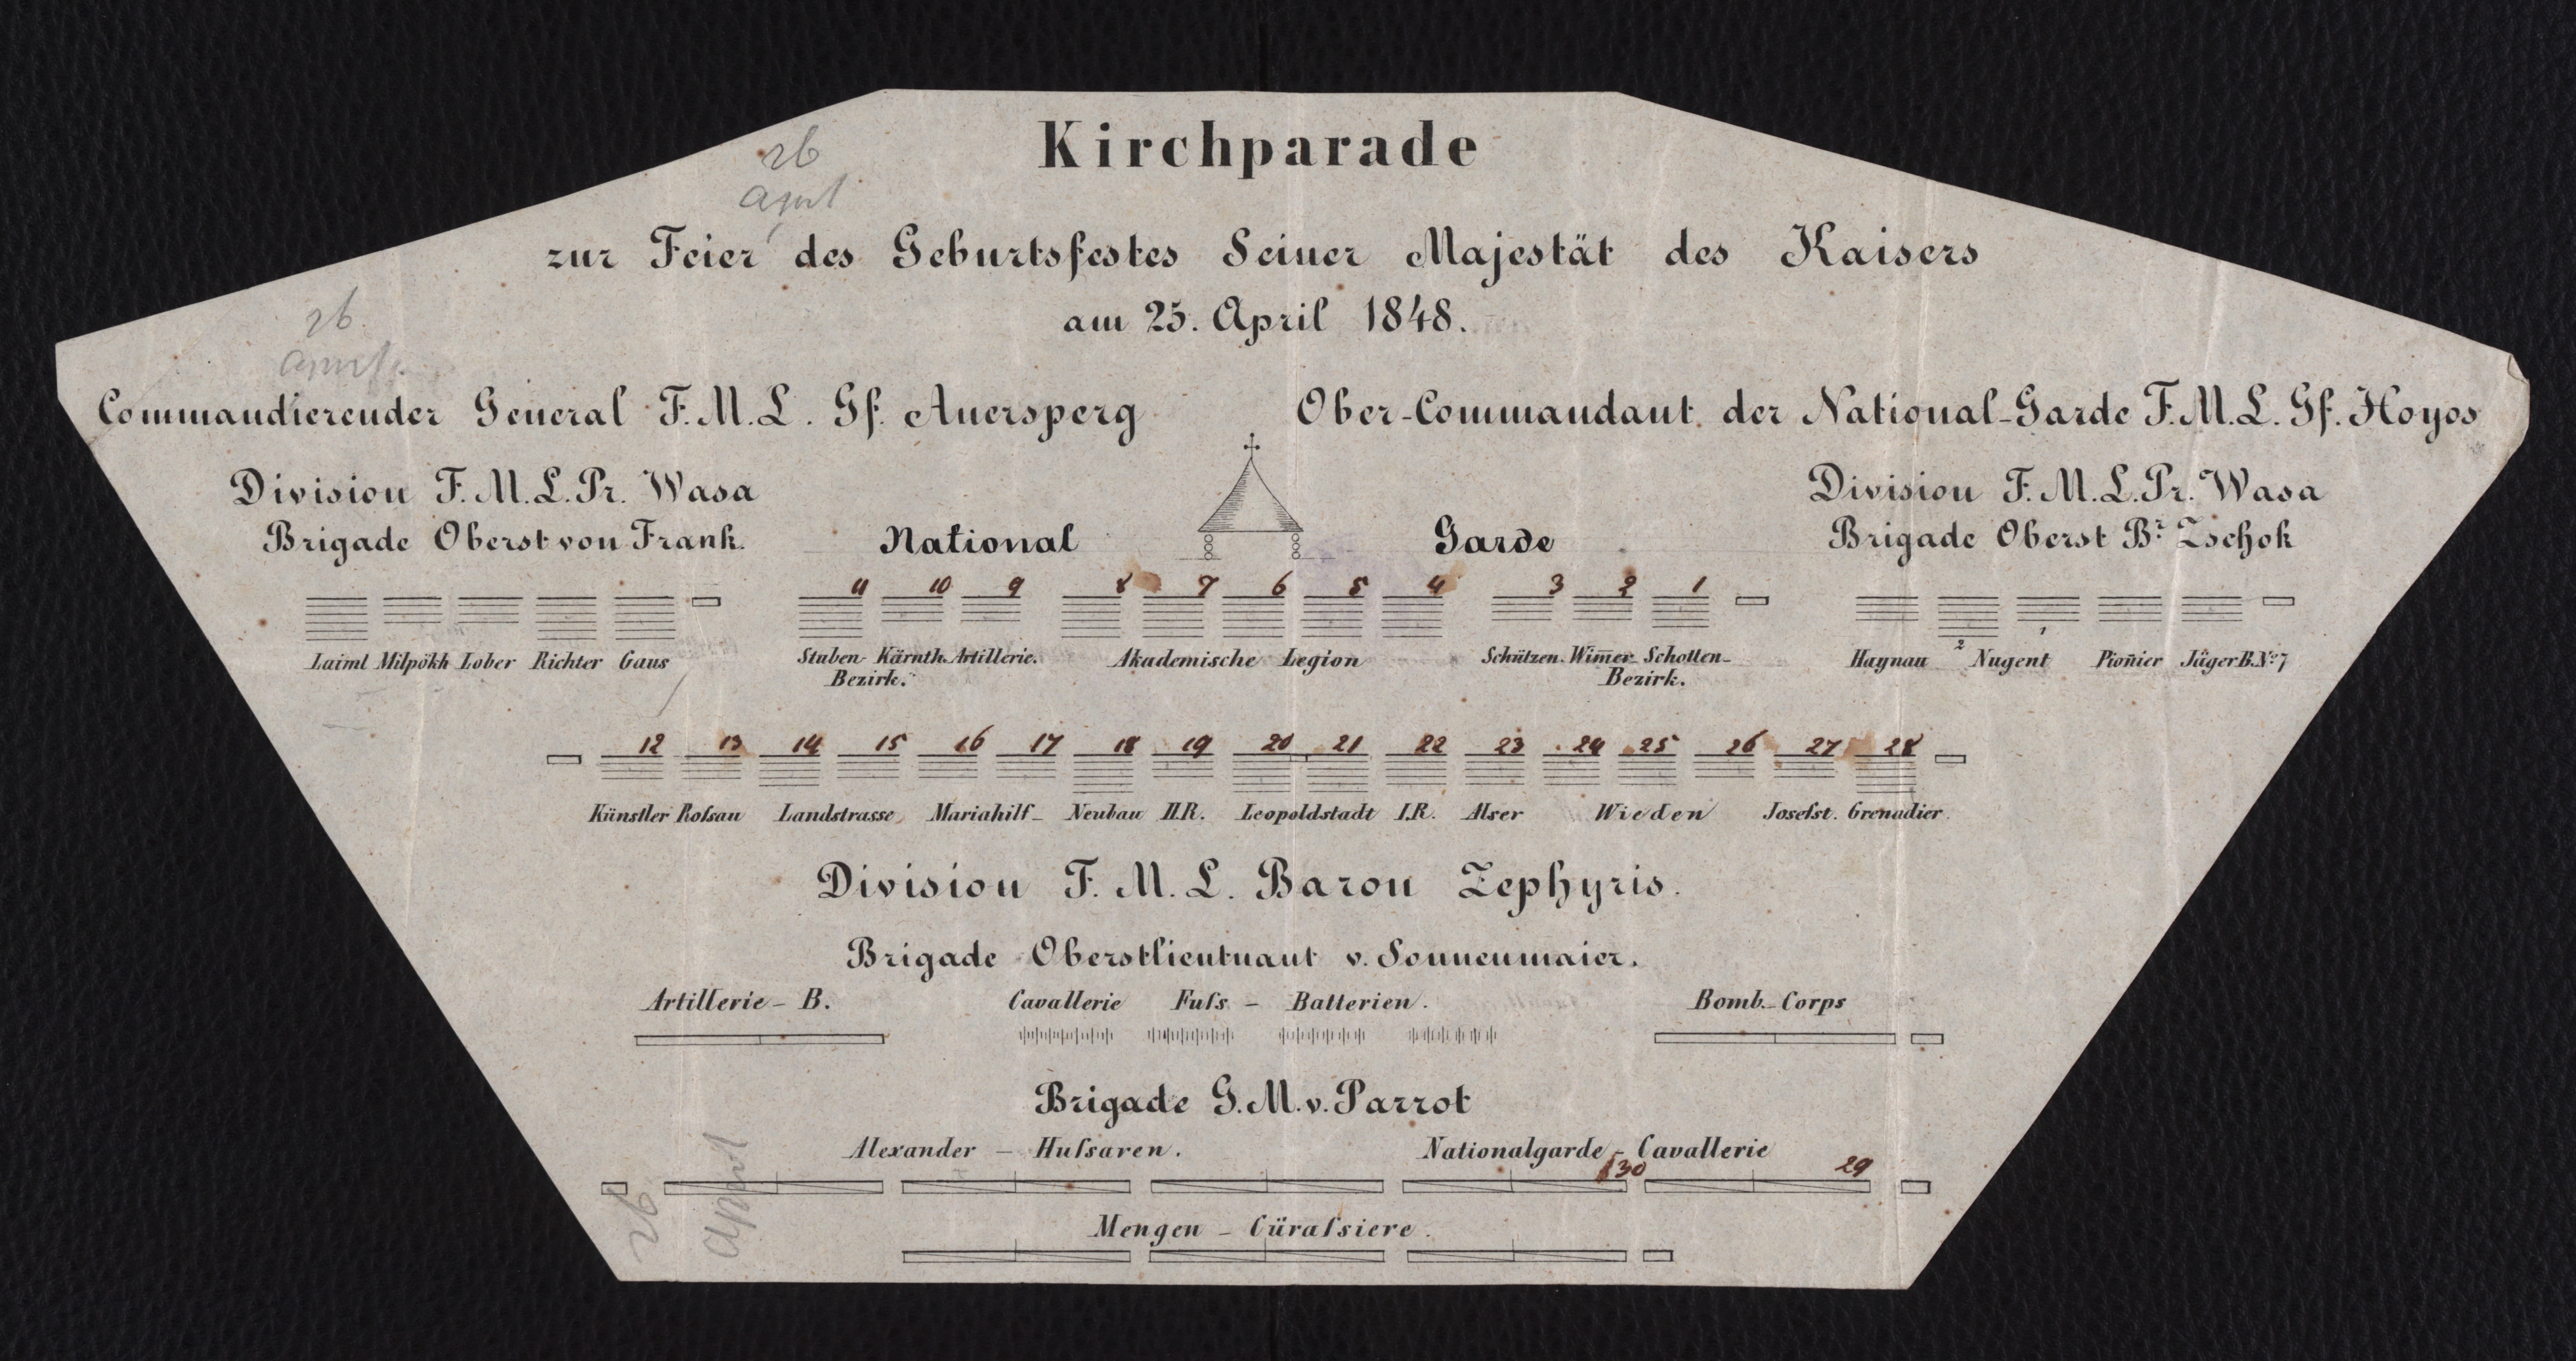 26
April
Kirchparade
zur Feier des Geburtsfestes Seiner Majestät des Kaisers
am 25. April 1848.
26
April
Commandierender General F.M.L. Gf. Auersperg
Ober-Commandant der National-Garde F.M.L. Gf. Hoyos
Division F.M.L. Pr. Wasa
Brigade Oberst von Frank.
National Garde
Division F.M.L. Pr. Wasa
Brigade Oberst Br. Zschok
11 10 9 8 7 6 5 4 3 2 1
Laiml Milpökh Lober Richter Gaus
Stuben- Kärnth. Artillerie.
Bezirk.
Akademische Legion
Schützen. Wim̄er- Schotten-
Bezirk.
2 1
Haynau Nugent Pion̄ier Jäger B. No. 7
12 13 14 15 16 17 18 19 20 21 22 23 24 25 26 27 28
Künstler Roſsau Landstrasse Mariahilf- Neubau II.R. Leopoldstadt I.R. Alser Wieden Josefst. Grenadier.
Division F.M.L. Baron Zephyris.
Brigade Oberstlieutnant v. Sonnenmaier.
Artillerie-B. Cavallerie Fuſs-Batterien. Bomb.-Corps
Brigade G.M. v. Parrot
Alexander-Huſsaren. Nationalgarde-Cavallerie
30 29
Mengen-Cüraſsiere.
26
April